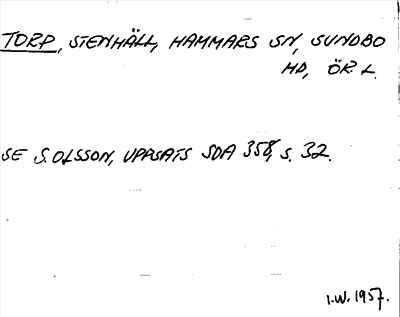 TORP, STENHÄLL, HAMMARS SN, SUNDBO
HD, ÖR. L.
SE S. OLSSON, UPPSATS SOA 358, S. 32.
I.W. 1957.